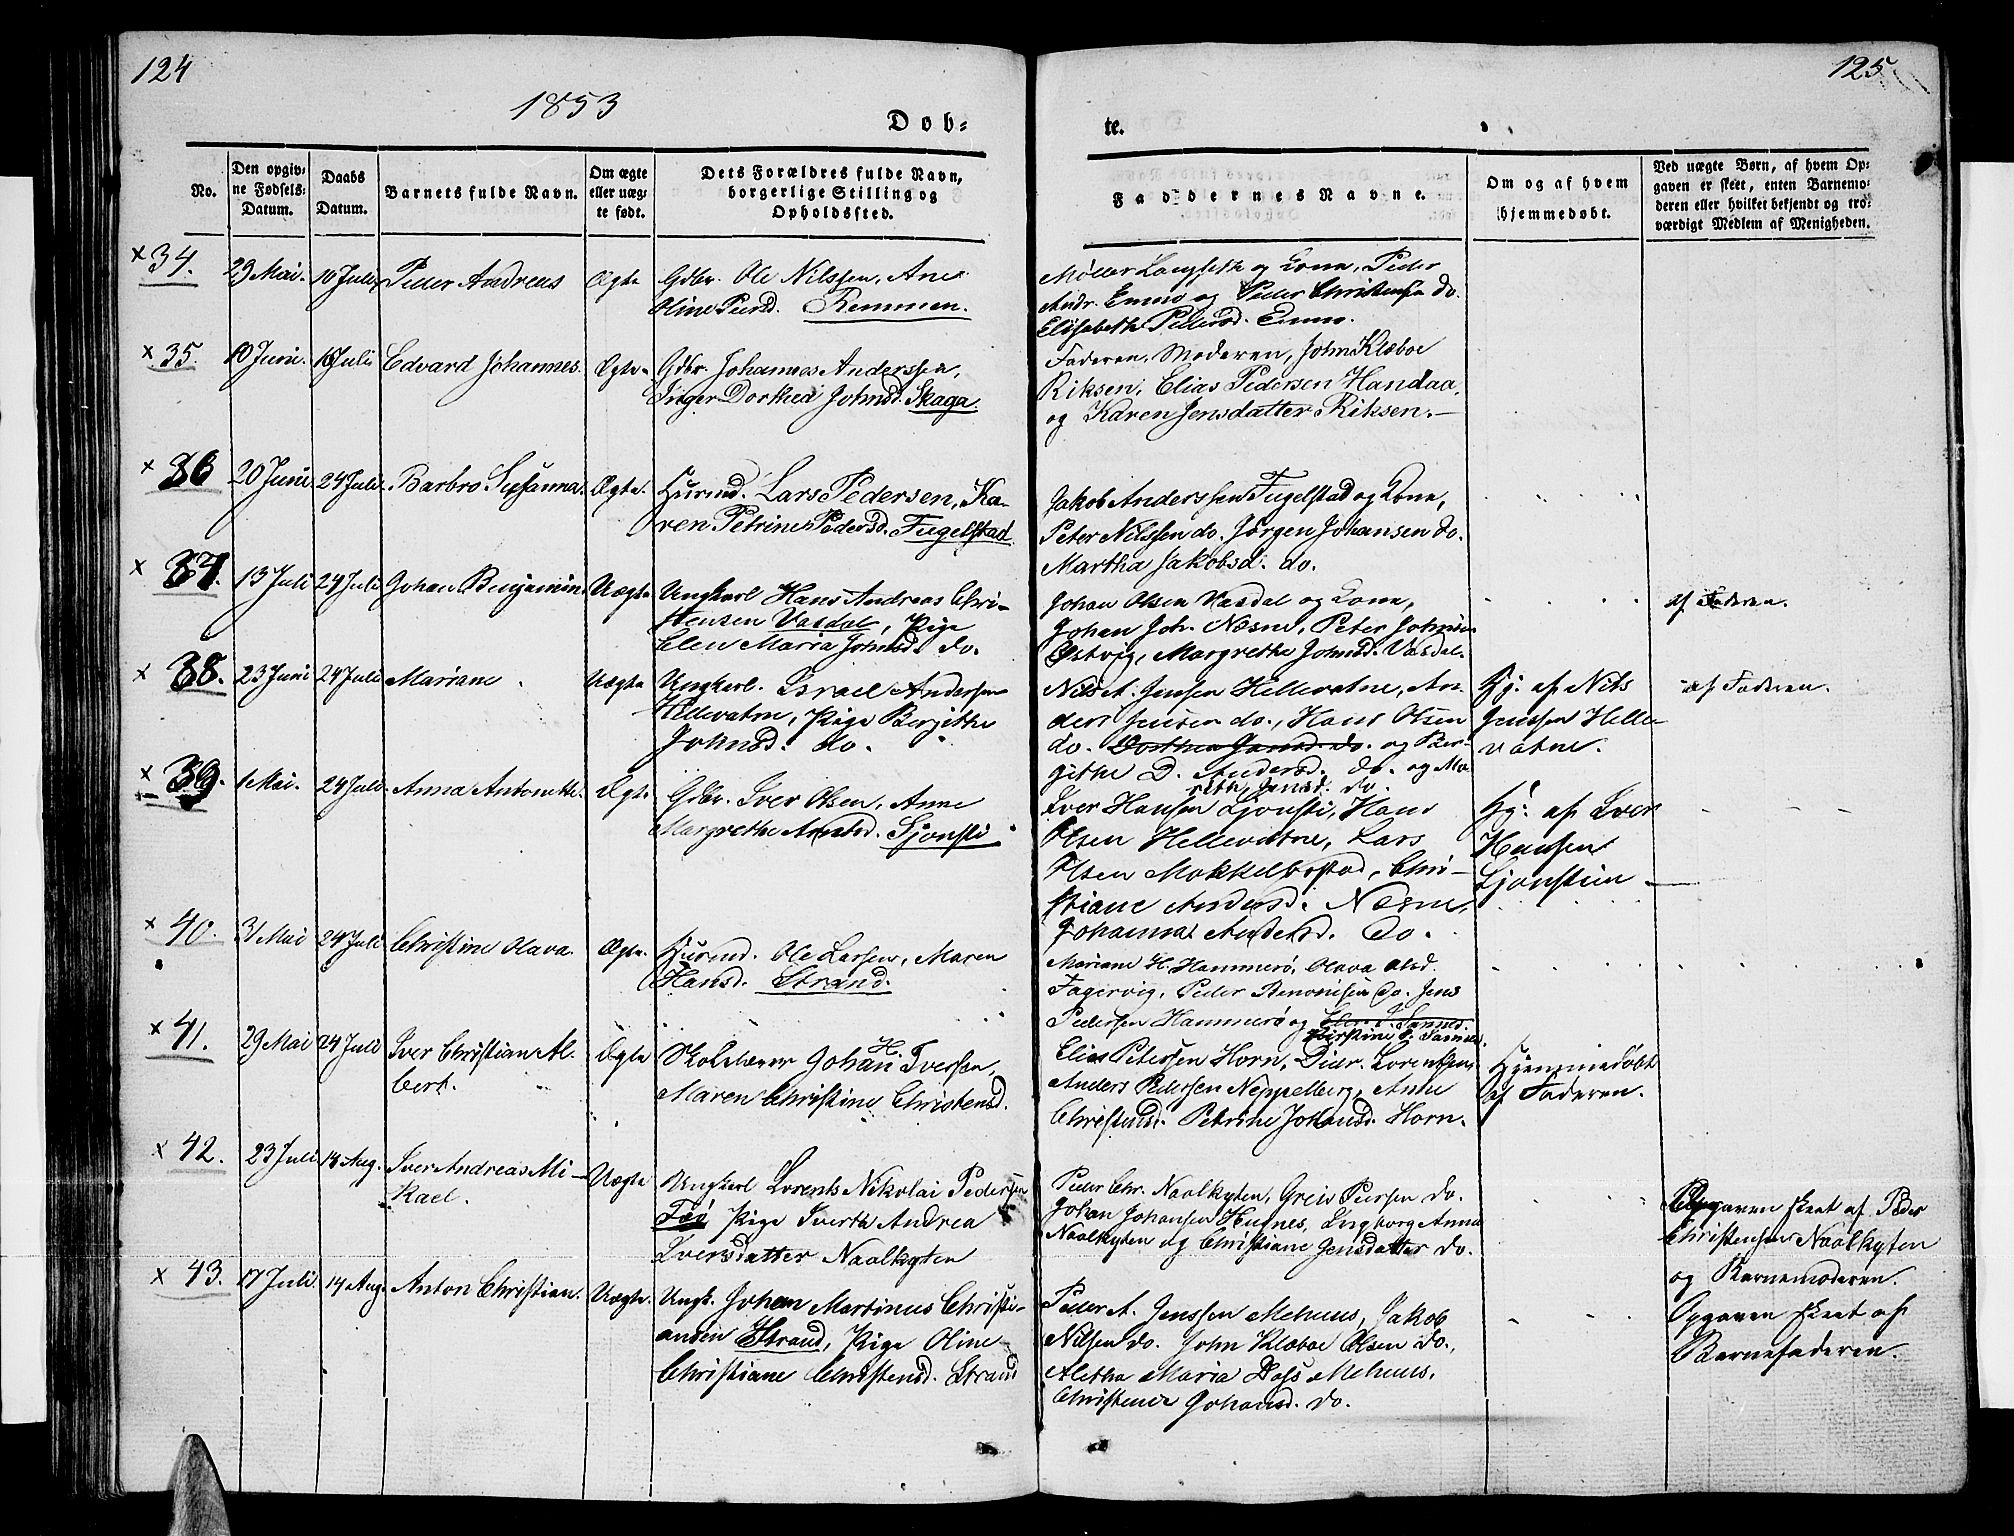 124
1853
Dob-
No.
Den opgiv-
ne Fødsels-
Datum.
Daabs
Datum.
Barnets fulde Navn.
Om ægte
eller uæg-
te født.
Dets Forældres fulde Navn,
borgerlige Stilling og
Opholdssted.
34.
29 Mai.
10 Juli
Peder Andreas
Ægte
Gdbr. Ole Nilssen, Ane
Oline Peersd. Remmen.
35.
10 Juni.
10 Juli
Edvard Johannes.
Ægte
Gdbr. Johannes Anderssen,
Inger Dorthea Johnsd. Skaga.
36
20 Juni
24 Juli
Barbro Susanna.
Ægte.
Huusmd. Lars Pedersen, Ka-
ren Petrine Pedersd. Fugelstad.
37.
13 Juli
24 Juli
Johan Benjamin
Uægte
Ungkarl Hans Andreas Chri-
stensen Vasdal, Pige
Elen Maria Johnsd. do.
38.
23 Juni
24 Juli
Mariane
Uægte
Ungkarl. Israel Andersen
Hellevatne, Pige Bergitte
Johnsd. do.
39.
1 Mai.
24 Juli
Anna Antonette.
Ægte
Gdbr. Iver Olsen, Anne
Margrethe Arntsd. Sjonsti
40.
31 Mai
24 Juli
Christine Olava.
Ægte.
Huusmd. Ole Larsen, Maren
Hansd. Strand.
41.
29 Mai
24 Juli
Iver Christian Al-
bert.
Ægte
Skolelærer Johan H. Iversen,
Maren Christine Christensd.
42.
23 Juli
14 Aug.
Iver Andreas Mi-
kael.
Uægte
Ungkarl Lorents Nikolai Pedersen
Pige Iverth Andrea
Iversdatter Naalkyten
43.
17 Juli.
14 Aug.
Anton Christian.
Uægte.
Ungk. Johan Martinus Christi-
ansen Strand, Pige Oline
Christiane Christensd. Strand
125
te.
Faddernes Navne.
Om og af hvem
hjemmedøbt.
Ved uægte Børn, af hvem Op-
gaven er skeet, enten Barnemo-
deren eller hvilket bekjendt og tro-
værdigt Medlem af Menigheden.
Møller Langseth og Kone, Peder
Andr. Enmo og Peder Christensen do.
Elisabeth Pedersd. Enmo.
Faderen, Moderen, John Klæboe
Riksen, Elias Pedersen Handaa,
og Karen Jensdatter Riksen.
Jakob Anderssen Fugelstad og Kone,
Peter Nilssen do. Jørgen Johansen do.
Martha Jakobsd. do.
Johan Olsen Vasdal og Kone,
Johan Joh. Næsne, Peter Johnsen
Østvig, Margrethe Johnsd. Vasdal.
af Faderen.
Nils Jensen Hellevatne, An-
ders Jensen do., Hans Olsen
do. Dorthea Jansd. do. og Ber-
githe D. Andersd. do. og Ma-
reth. Jensd. do.
Hj. af Nils
Jenssen Helle-
vatne.
af Faderen.
Iver Hansen Sjonsti, Hans
Olsen Hellevatne, Lars
Olsen Mokkelbostad, Chri-
stiane Andersd. Næsne,
Johanna Andersd. do.
Hj. af Iver
Hansen
Sjonstien
Mariane H. Hammerø, Olava Olsd.
Fagervig, Peder Benonisen do. Jens
Pedersen Hammerø og
Elias Petersen Horn, Didr. Lorentsen,
Anders Pedersen Neppelberg, Anne
Christensd. Petrine Johansd. Horn.
Hjemmedøbt
af Faderen.
Peder Chr. Naalkyten, Greis Peersen do.
Johan Johansen Husnes, Ingborg Anna
Naalkyten og Christiane Jensdatter do.
Opgaven skeet af Peder
Christensen Naalkyten
og Barnemoderen.
Peder A. Jenssen Mehuus, Jakob
Nilsen do. John Klæboe Olsen do.,
Aletha Maria Mehuus,
Christence Johansd. do.
Opgaven skeet af
Barnefaderen.